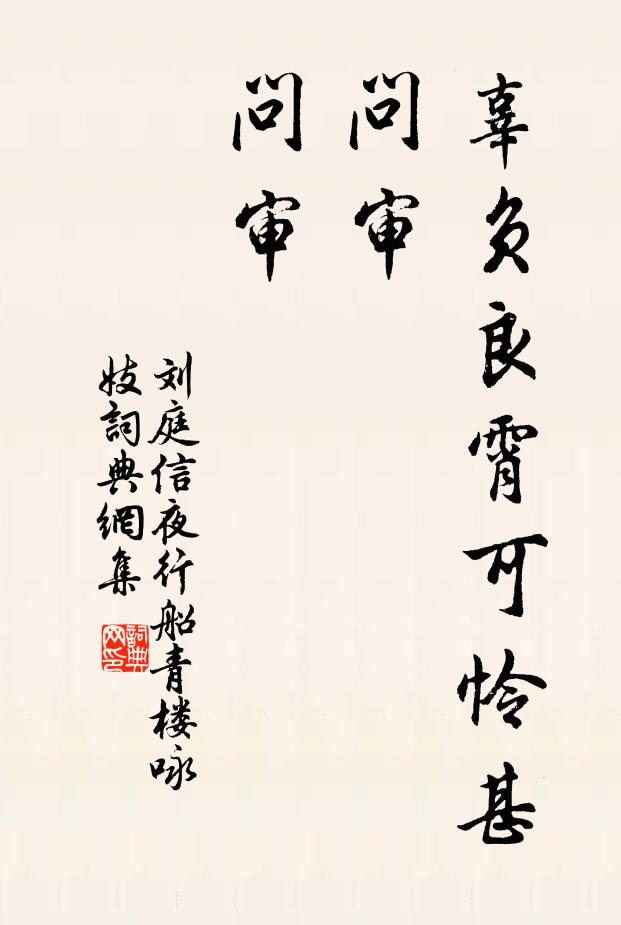 辜负良霄可怜甚
问审
问审
刘庭信夜行船青楼咏
妓詞典網集
詞典网印